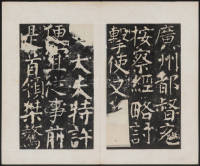 廣州都督充
按察經略討
擊使又
大夫特許
便宜從事前
是首領桀驁